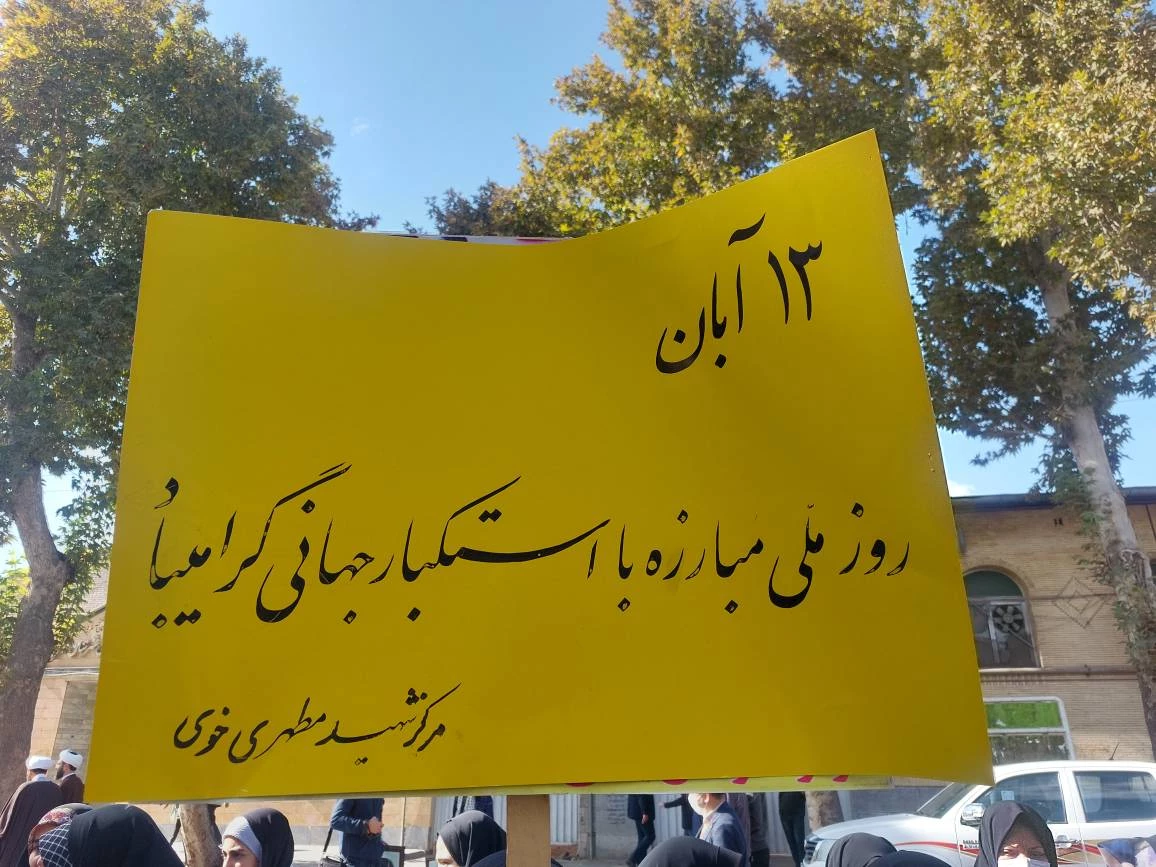 ۱۳ آبان
روز ملّی مبارزه با استکبار جهانی گرامیباد
مرکز شهید مطهری خوی